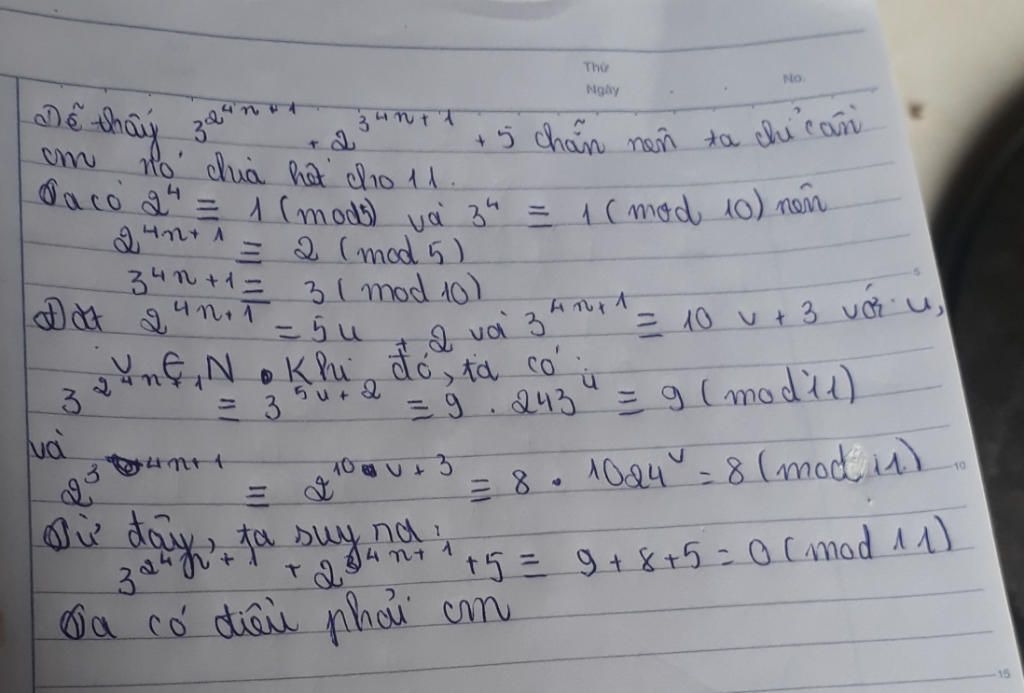 Thứ
Ngày
No.
Dễ thấy 3^2^4n+1 + 2^3^4n+1 + 5 chẵn nên ta chỉ cần
cm nó chia hết cho 11.
Ta có 2^4 ≡ 1 (mod5) và 3^4 ≡ 1 (mod 10) nên
2^4n+1 ≡ 2 (mod 5)
3^4n+1 ≡ 3 (mod 10)
Đặt 2^4n+1 = 5u + 2 và 3^4n+1 ≡ 10 v + 3 với u,
v ∈ N. Khi đó, ta có:
3^2^4n+1 ≡ 3^5u+2 ≡ 9 . 243^u ≡ 9 (mod 11)
và
2^3^4n+1 ≡ 2^10v+3 ≡ 8 . 1024^v = 8 (mod 11)
Từ đây, ta suy ra:
3^2^4n+1 + 2^3^4n+1 + 5 ≡ 9 + 8 + 5 = 0 (mod 11)
Ta có điều phải cm
5
10
15